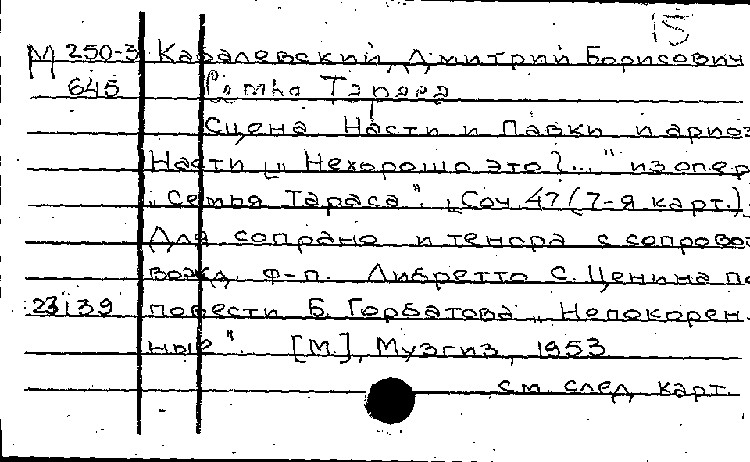 15
М 250-3 Кабалевский, Дмитрий Борисович
645 Семья Тараса
Сцена Насти и Павки и ариоз
Насти „Нехорошо это?..." из опер
„Семья Тараса". Соч. 47 (7-я карт.).
Для сопрано и тенора с сопровож
вожд. ф-п. Либретто С. Ценина по
23139 повести Б. Горбатова „Непокорен-
ные". [М.], Музгиз, 1953
см. след. карт.